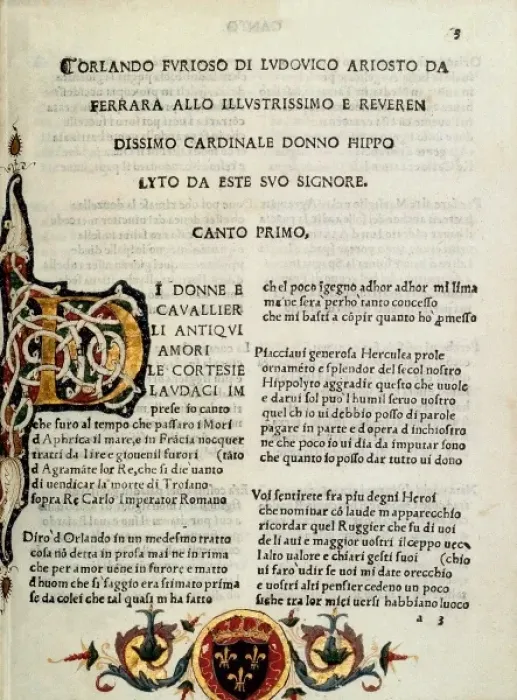 3
ORLANDO FVRIOSO DI LVDOVICO ARIOSTO DA
FERRARA ALLO ILLVSTRISSIMO E REVEREN
DISSIMO CARDINALE DONNO HIPPO
LYTO DA ESTE SVO SIGNORE.
CANTO PRIMO,
DI DONNE E
CAVALLIER
LI ANTIQVI
AMORI
LE CORTESIE
LAVDACI IM
prese io canto
che furo al tempo che passaro i Mori
d Aphrica il mare, e in Frácia nocquer
tratti da lire e giouenil furori (táto
d Agramáte lor Re, che si die uanto
di uendicar la morte di Troiano
sopra Re Carlo Imperator Romano
Diro d Orlando in un medesmo tratto
cosa nó detta in prosa mai ne in rima
che per amor uene in furore e matto
d huom che si saggio era stimato prima
se da colei che tal quasi m ha fatto
ch el poco igegno adhor adhor mi lima
me ne sera perho tanto concesso
che mi basti a cópir quanto ho pmesso
Piacciaui generosa Herculea prole
ornaméto e splendor del secol nostro
Hippolyto aggradir questo che uuole
e darui sol puo l humil seruo uostro
quel ch io ui debbio posso di parole
pagare in parte e d opera d inchiostro
ne che poco io ui dia da imputar sono
che quanto io posso dar tutto ui dono
Voi sentirete fra piu degni Heroi
che nominar có laude m apparecchio
ricordar quel Ruggier che fu di uoi
de li aui e maggior uostri il ceppo uec
l alto ualore e chiari gesti suoi (chio
ui faro udir se uoi mi date orecchio
e uostri alti pensier cedeno un poco
siche tra lor miei uersi habbiano luoco
a 3